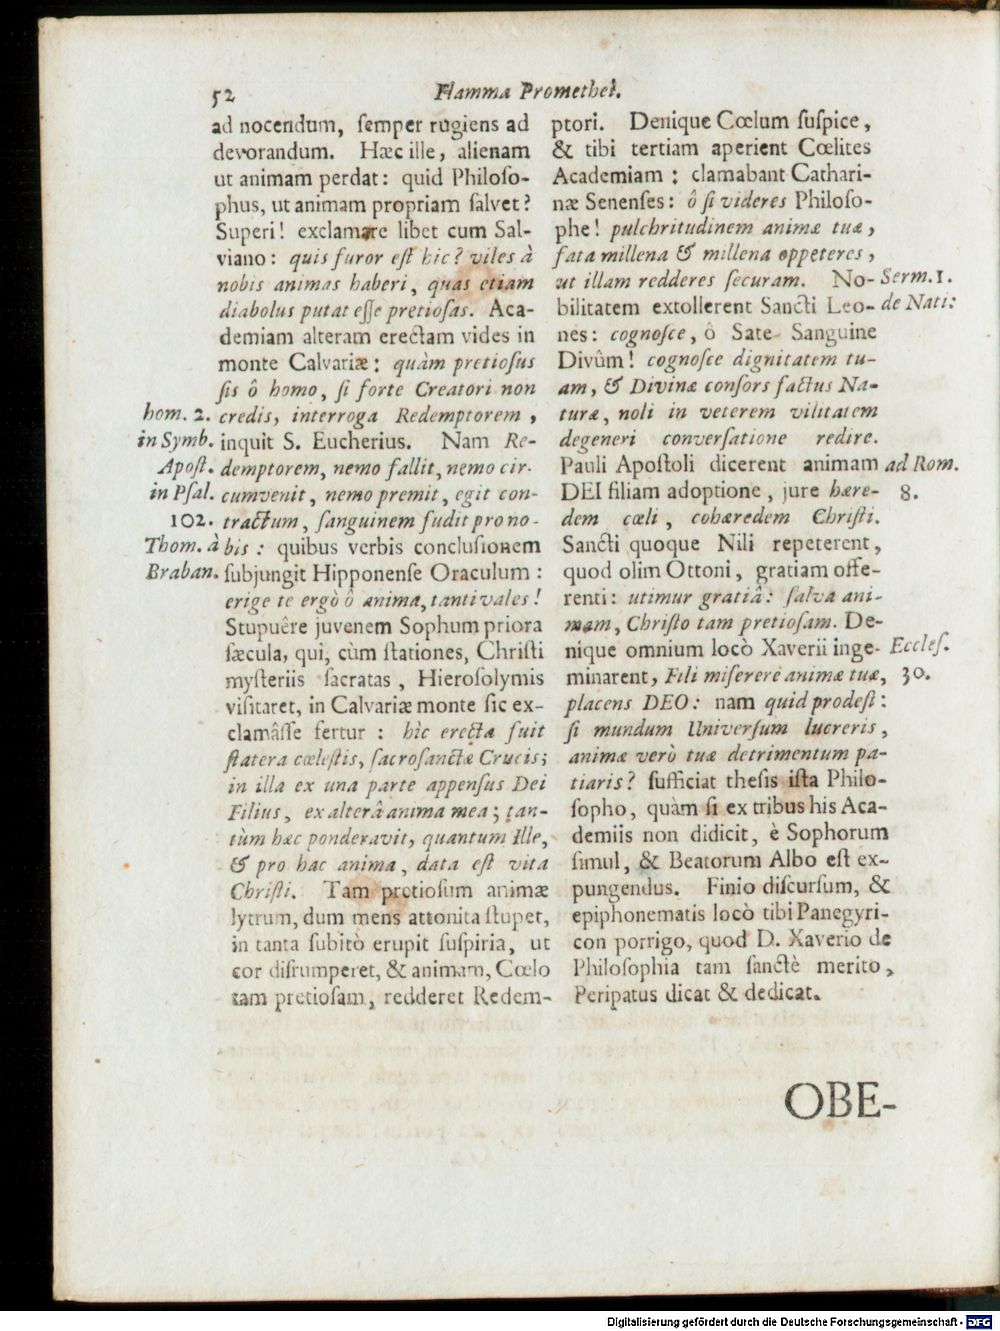 52 Flamma Promethei.
ad nocendum, semper rugiens ad
devorandum. Hæc ille, alienam
ut animam perdat: quid Philoso-
phus, ut animam propriam salvet?
Superi! exclamare libet cum Sal-
viano: quis furor est hic? viles à
nobis animas haberi, quas etiam
diabolus putat esse pretiosas. Aca-
demiam alteram erectam vides in
monte Calvariæ: quàm pretiosus
sis ô homo, si forte Creatori non
hom. 2. credis, interroga Redemptorem,
in Symb. inquit S. Eucherius. Nam Re-
Apost. demptorem, nemo fallit, nemo cir-
in Psal. cumvenit, nemo premit, egit con-
102. tractum, sanguinem fudit pro no-
Thom. à bis: quibus verbis conclusionem
Braban. subjungit Hipponense Oraculum:
erige te ergò ô anima, tanti vales!
Stupuêre juvenem Sophum priora
sæcula, qui, cùm stationes, Christi
mysteriis sacratas, Hierosolymis
visitaret, in Calvariæ monte sic ex-
clamâsse fertur: hìc erecta fuit
statera cœlestis, sacrosanctæ Crucis;
in illa ex una parte appensus Dei
Filius, ex alterâ anima mea; tan-
tùm hæc ponderavit, quantum Ille,
& pro hac anima, data est vita
Christi. Tam pretiosum animæ
lytrum, dum mens attonita stupet,
in tanta subitò erupit suspiria, ut
cor disrumperet, & animam, Cœlo
tam pretiosam, redderet Redem-
ptori. Denique Cœlum suspice,
& tibi tertiam aperient Cœlites
Academiam: clamabant Cathari-
næ Senenses: ô si videres Philoso-
phe! pulchritudinem animæ tuæ,
fata millena & millena oppeteres,
ut illam redderes securam. No- Serm. 1.
bilitatem extollerent Sancti Leo- de Nati:
nes: cognosce, ô Sate Sanguine
Divûm! cognosce dignitatem tu-
am, & Divinæ consors factus Na-
turæ, noli in veterem vilitatem
degeneri conversatione redire.
Pauli Apostoli dicerent animam ad Rom.
DEI filiam adoptione, jure hære- 8.
dem cœli, cohæredem Christi.
Sancti quoque Nili repeterent,
quod olim Ottoni, gratiam offe-
renti: utimur gratiâ: salva ani-
mam, Christo tam pretiosam. De-
nique omnium locò Xaverii inge- Eccles.
minarent, Fili miserere animæ tuæ, 30.
placens DEO: nam quid prodest:
si mundum Universum lucreris,
animæ verò tuæ detrimentum pa-
tiaris? sufficiat thesis ista Philo-
sopho, quàm si ex tribus his Aca-
demiis non didicit, è Sophorum
simul, & Beatorum Albo est ex-
pungendus. Finio discursum, &
epiphonematis locò tibi Panegyri-
con porrigo, quod D. Xaverio de
Philosophia tam sanctè merito,
Peripatus dicat & dedicat.
OBE-
Digitalisierung gefördert durch die Deutsche Forschungsgemeinschaft - DFG